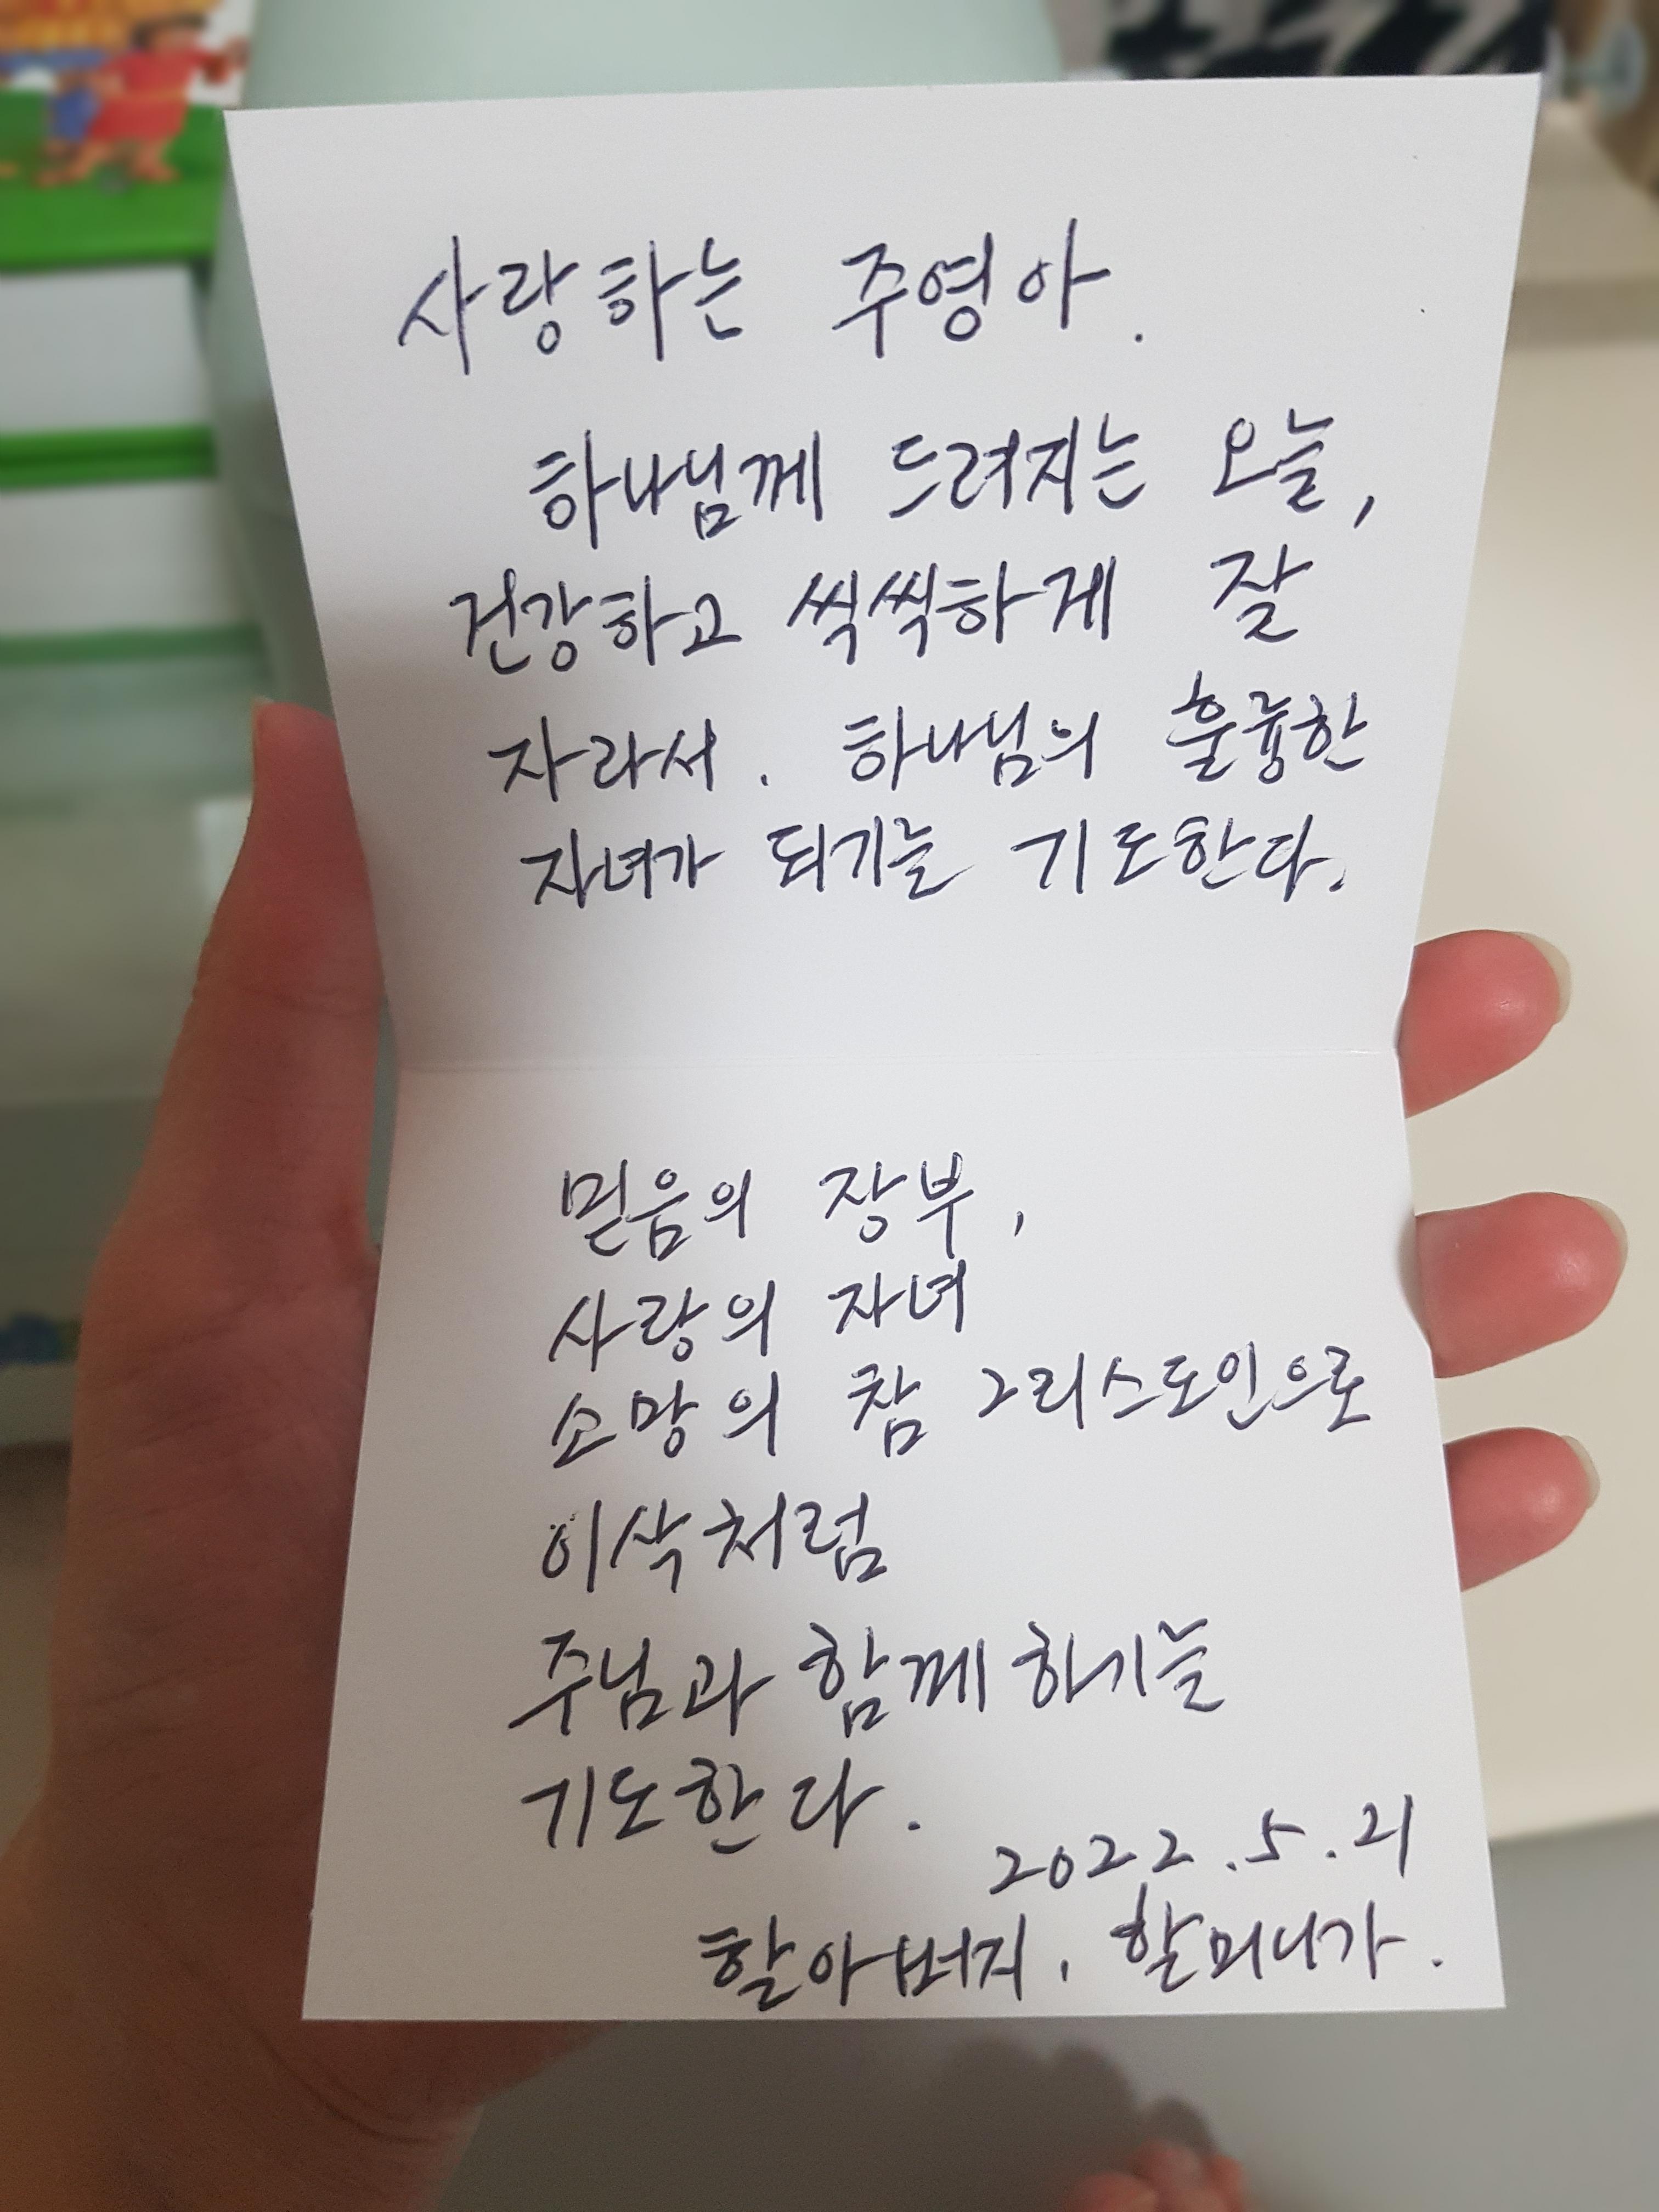 사랑하는 주영아.
하나님께 드려지는 오늘,
건강하고 씩씩하게 잘
자라서. 하나님의 훌륭한
자녀가 되기를 기도한다.
믿음의 장부,
사랑의 자녀
소망의 참 그리스도인으로
이삭처럼
주님과 함께 하기를
기도한다.
2022.5.21
할아버지, 할머니가.